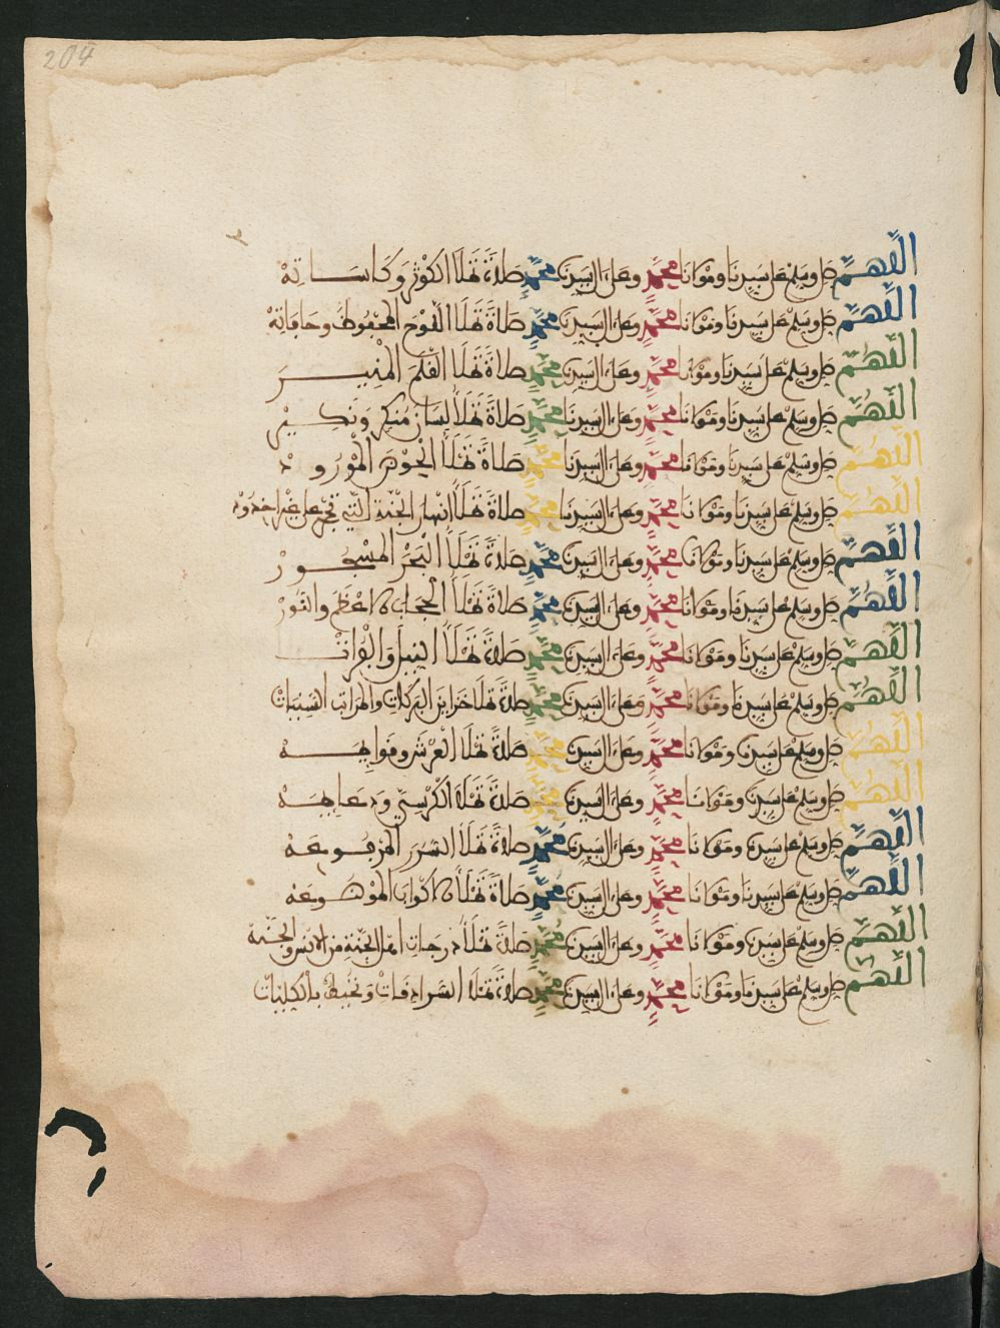 204
اللهم صل وسلم على سيدنا ومولانا محمد وعلى ءال سيدنا محمد صلاة تملأ الكوثر وكاساته
اللهم صل وسلم على سيدنا ومولانا محمد وعلى ءال سيدنا محمد صلاة تملأ اللوح المحفوظ وحافاته
اللهم صل وسلم على سيدنا ومولانا محمد وعلى ءال سيدنا محمد صلاة تملأ القلم المنير
اللهم صل وسلم على سيدنا ومولانا محمد وعلى ءال سيدنا محمد صلاة تملأ لسان منكر ونكير
اللهم صل وسلم على سيدنا ومولانا محمد وعلى ءال سيدنا محمد صلاة تملأ الحوض المورود
اللهم صل وسلم على سيدنا ومولانا محمد وعلى ءال سيدنا محمد صلاة تملأ أنهار الجنة التي تجري على غير اخدود
اللهم صل وسلم على سيدنا ومولانا محمد وعلى ءال سيدنا محمد صلاة تملأ البحر المسجور
اللهم صل وسلم على سيدنا ومولانا محمد وعلى ءال سيدنا محمد صلاة تملأ الحجاب الاعظم والنور
اللهم صل وسلم على سيدنا ومولانا محمد وعلى ءال سيدنا محمد صلاة تملأ النيل والفرات
اللهم صل وسلم على سيدنا ومولانا محمد وعلى ءال سيدنا محمد صلاة تملأ خزاين البركات والمراتب السنيات
اللهم صل وسلم على سيدنا ومولانا محمد وعلى ءال سيدنا محمد صلاة تملأ العرش ومواهبه
اللهم صل وسلم على سيدنا ومولانا محمد وعلى ءال سيدنا محمد صلاة تملأ الكرسي
اللهم صل وسلم على سيدنا ومولانا محمد وعلى ءال سيدنا محمد صلاة تملأ السرر المرفوعة
اللهم صل وسلم على سيدنا ومولانا محمد وعلى ءال سيدنا محمد صلاة تملأ الاكواب الموضوعة
اللهم صل وسلم على سيدنا ومولانا محمد وعلى ءال سيدنا محمد صلاة تملأ درجات اهل الجنة من الانس والجنة
اللهم صل وسلم على سيدنا ومولانا محمد وعلى ءال سيدنا محمد صلاة تملأ السرادقات وتحيط بالكليات